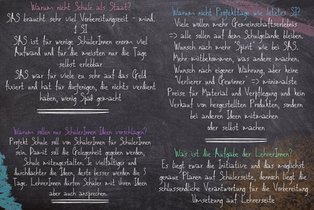 Warum nicht Schule als Staat?
SAS braucht sehr viel Vorbereitungszeit - mind.
1 SJ
SAS ist für wenige SchülerInnen enorm viel
Aufwand und für die meisten nur die Tage
selbst erlebbar
SAS war für viele zu sehr auf das Geld
fixiert und hat für diejenigen, die nichts verdient
haben, wenig Spaß gemacht
Warum sollen nur SchülerInnen Ideen vorschlagen?
Projekt Schule soll von SchülerInnen für SchülerInnen
sein. Damit soll die Gelegenheit gegeben werden,
Schule mitzugestalten. Je vielfältiger und
durchdachter die Ideen, desto besser werden die 3
Tage. LehrerInnen dürfen Schüler mit ihren Ideen
aber auch ansprechen.
Warum nicht Projekttage wie letztes SJ?
Viele wollen mehr Gemeinschaftserlebnis
=> alle sollen auf dem Schulgelände bleiben.
Wunsch nach mehr "Spirit" wie bei SAS.
Mehr mitbekommen, was andere machen.
Wunsch nach eigener Währung, aber keine
Verlierer und Gewinner => minimalste
Preise für Material und Verpflegung und kein
Verkauf von hergestellten Produkten, sondern
bei anderen Ideen mitmachen
oder selbst machen
Was ist die Aufgabe der LehrerInnen?
Es liegt zwar die Initiative und das möglichst
genaue Planen auf Schülerseite, dennoch liegt die
schlussendliche Verantwortung für die Vorbereitung
Umsetzung auf Lehrerseite